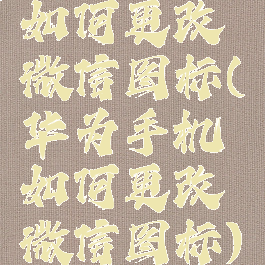 如何更改
微信图标(
华为手机
如何更改
微信图标)